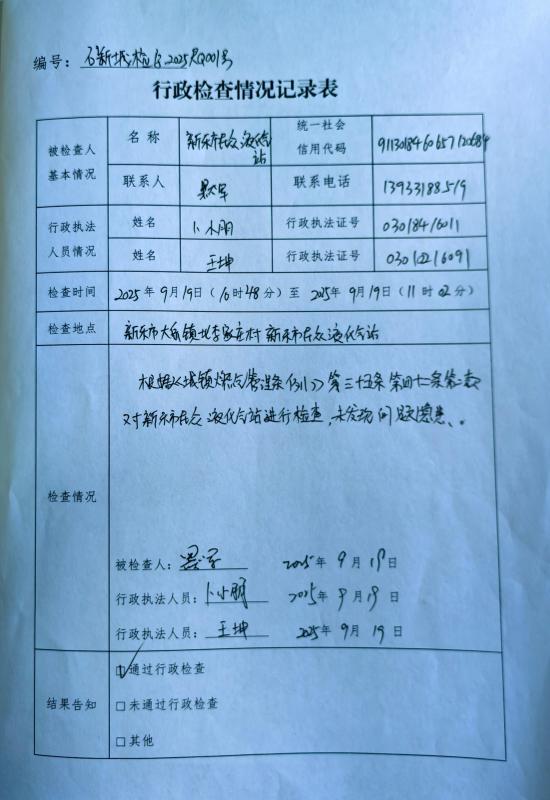 编号：石新城检字2025RQ001号
行政检查情况记录表
被检查人基本情况 名称 新乐市民众液化气站 统一社会信用代码 9113018460657120684
联系人 联系电话 13933188519
行政执法人员情况 姓名 卜小朋 行政执法证号 03018416011
姓名 王坤 行政执法证号 03012216091
检查时间 2025年9月19日（10时48分）至 2025年9月19日（11时02分）
检查地点 新乐市大岳镇北李家庄村新乐市民众液化气站
检查情况
根据《城镇燃气管理条例》第三十五条第四十一条第二款
对新乐市民众液化气站进行检查，未发现问题隐患、。
被检查人： 2025年9月19日
行政执法人员：卜小朋 2025年9月19日
行政执法人员：王坤 2025年9月19日
结果告知
☑通过行政检查
□未通过行政检查
□其他